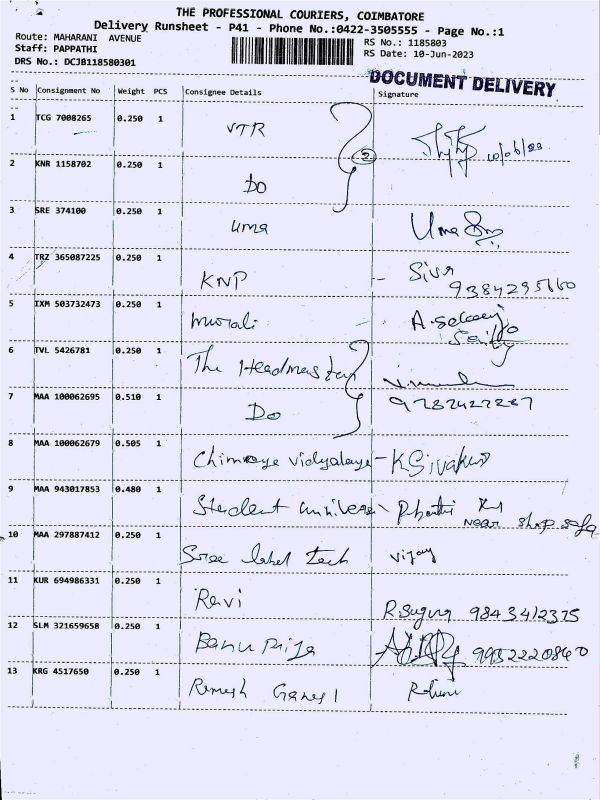 THE PROFESSIONAL COURIERS, COIMBATORE
Delivery Runsheet - P41 - Phone No.:0422-3505555 - Page No.:1
Route: MAHARANI AVENUE
RS No.: 1185803
Staff: PAPPATHI
RS Date: 10-Jun-2023
DRS No.: DCJB118580301
DOCUMENT DELIVERY
S No Consignment No Weight PCS Consignee Details Signature
1 TCG 7008265 0.250 1 VTR 10/06/23
2
2 KNR 1158702 0.250 1 DO
3 SRE 374100 0.250 1 uma Uma
4 TRZ 365087225 0.250 1 KNP Siva
9384295660
5 IXM 503732473 0.250 1 murali
6 TVL 5426781 0.250 1 The Headmaster
7 MAA 100062695 0.510 1 Do 9787427287
8 MAA 100062679 0.505 1 Chinmaya vidyalaya - K Sivakumar
9 MAA 943017853 0.480 1 Student
near shop
10 MAA 297887412 0.250 1 Sree label tech vijay
11 KUR 694986331 0.250 1 Ravi R. Suguna 9843412375
12 SLM 321659658 0.250 1 Banu Priya 9952220840
13 KRG 4517650 0.250 1 Remesh